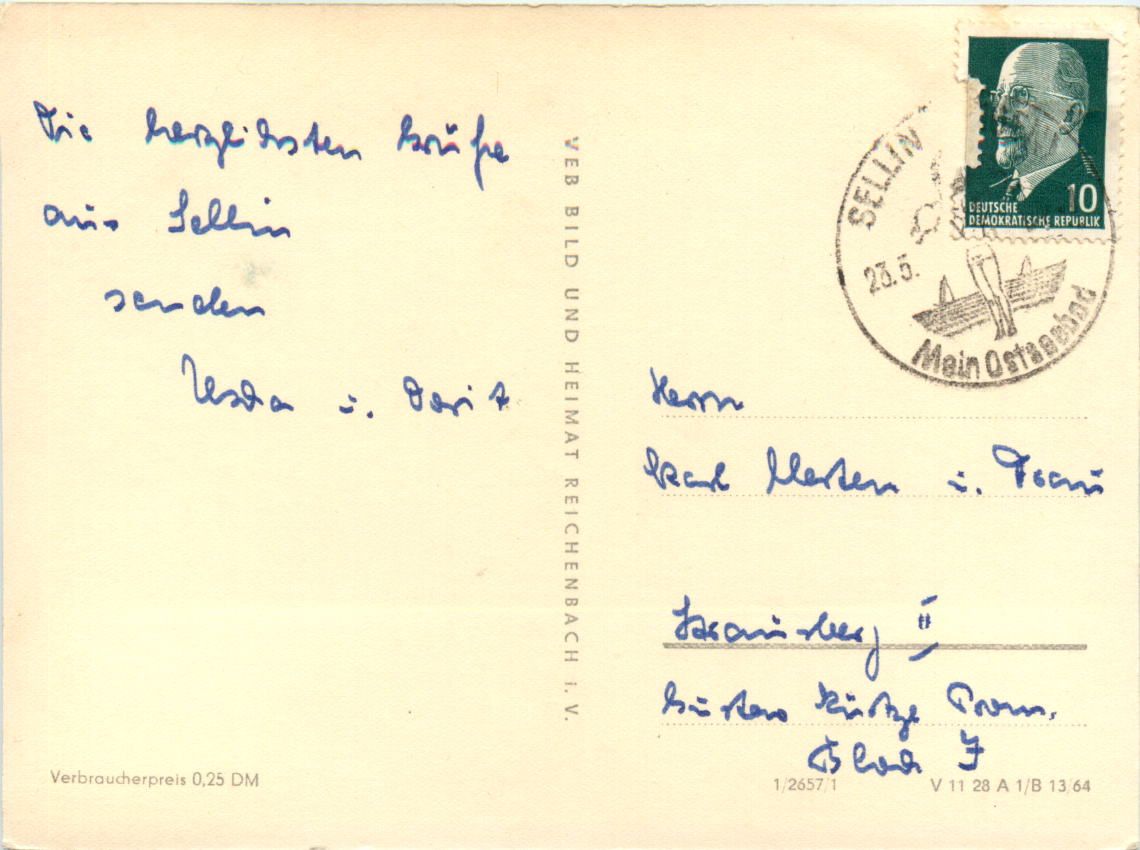 Die herzlichsten Grüße
aus Sellin
senden
u. Dorit
VEB BILD UND HEIMAT REICHENBACH i. V.
Verbraucherpreis 0,25 DM
10
DEUTSCHE
DEMOKRATISCHE REPUBLIK
SELLIN
23.5.
Mein Ostseebad
Herrn
Karl Merten u. Frau
Strausberg II
Gustav Kurtze Prom.
Block I
1/2657/1
V 11 28 A 1/B 13/64